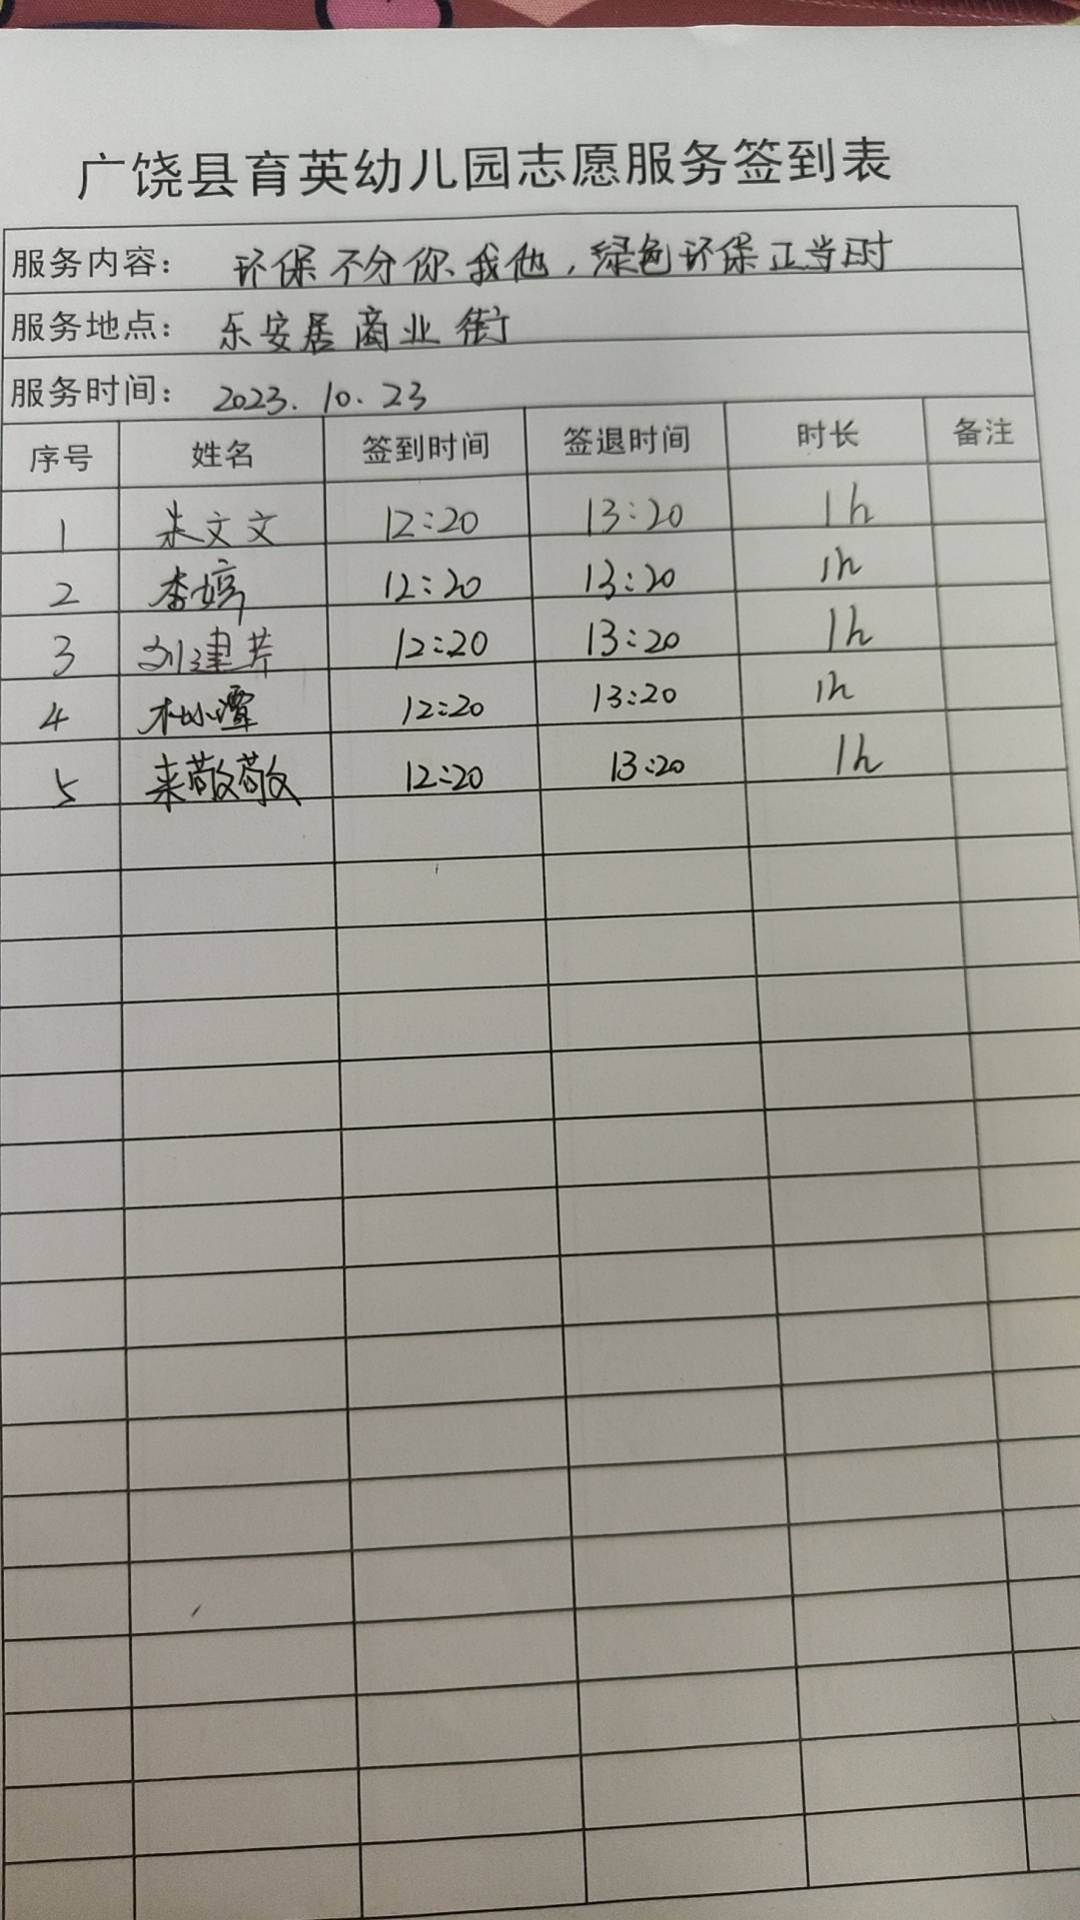 广饶县育英幼儿园志愿服务签到表
服务内容： 环保不分你、我他，绿色环保正当时
服务地点： 乐安居商业街
服务时间： 2023.10.23
序号 姓名 签到时间 签退时间 时长 备注
1 朱文文 12:20 13:20 1h
2 李婷 12:20 13:20 1h
3 刘建芹 12:20 13:20 1h
4 12:20 13:20 1h
5 来敬敬 12:20 13:20 1h